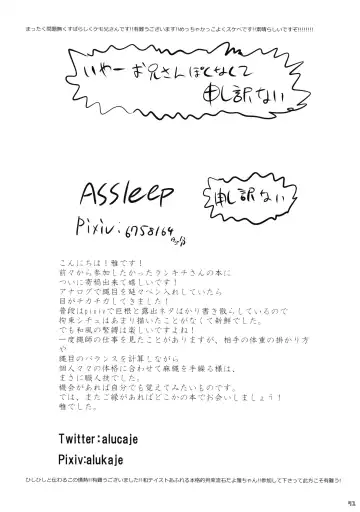 まったく問題無くすばらしくケモ兄さんです!!有難うございます!!めっちゃかっこよくスケベです!!素晴らしいですぞ!!!!!!!!
いやーお兄さんぽくなくて
申し訳ない
Assleep
申し訳ない
Pixiv:6758164
こんにちは!雅です!
前々から参加したかったランキチさんの本に
ついに寄稿出来て嬉しいです!
アナログで縄目を延々ペン入れしていたら
目がチカチカしてきました!
普段はpixivで巨根と露出ネタばかり書き散らしているので
拘束シチュはあまり描いたことがなくて新鮮でした。
でも和風の緊縛は楽しいですよね!
一度縄師の仕事を見たことがありますが、相手の体重の掛かり方
や
縄目のバランスを計算しながら
個人々々の体格に合わせて麻縄を手繰る様は、
まさに職人技でした。
機会があれば自分でも覚えてみたいものです。
では、またご縁があればどこかの本でお会いしましょう!
雅でした。
Twitter:alucaje
Pixiv:alukaje
ひしひしと伝わるこの情熱!!有難うございました!!和テイストあふれる本格的月来宮石だよ雅ちゃん!!参加して下さって此方こそ有難う!